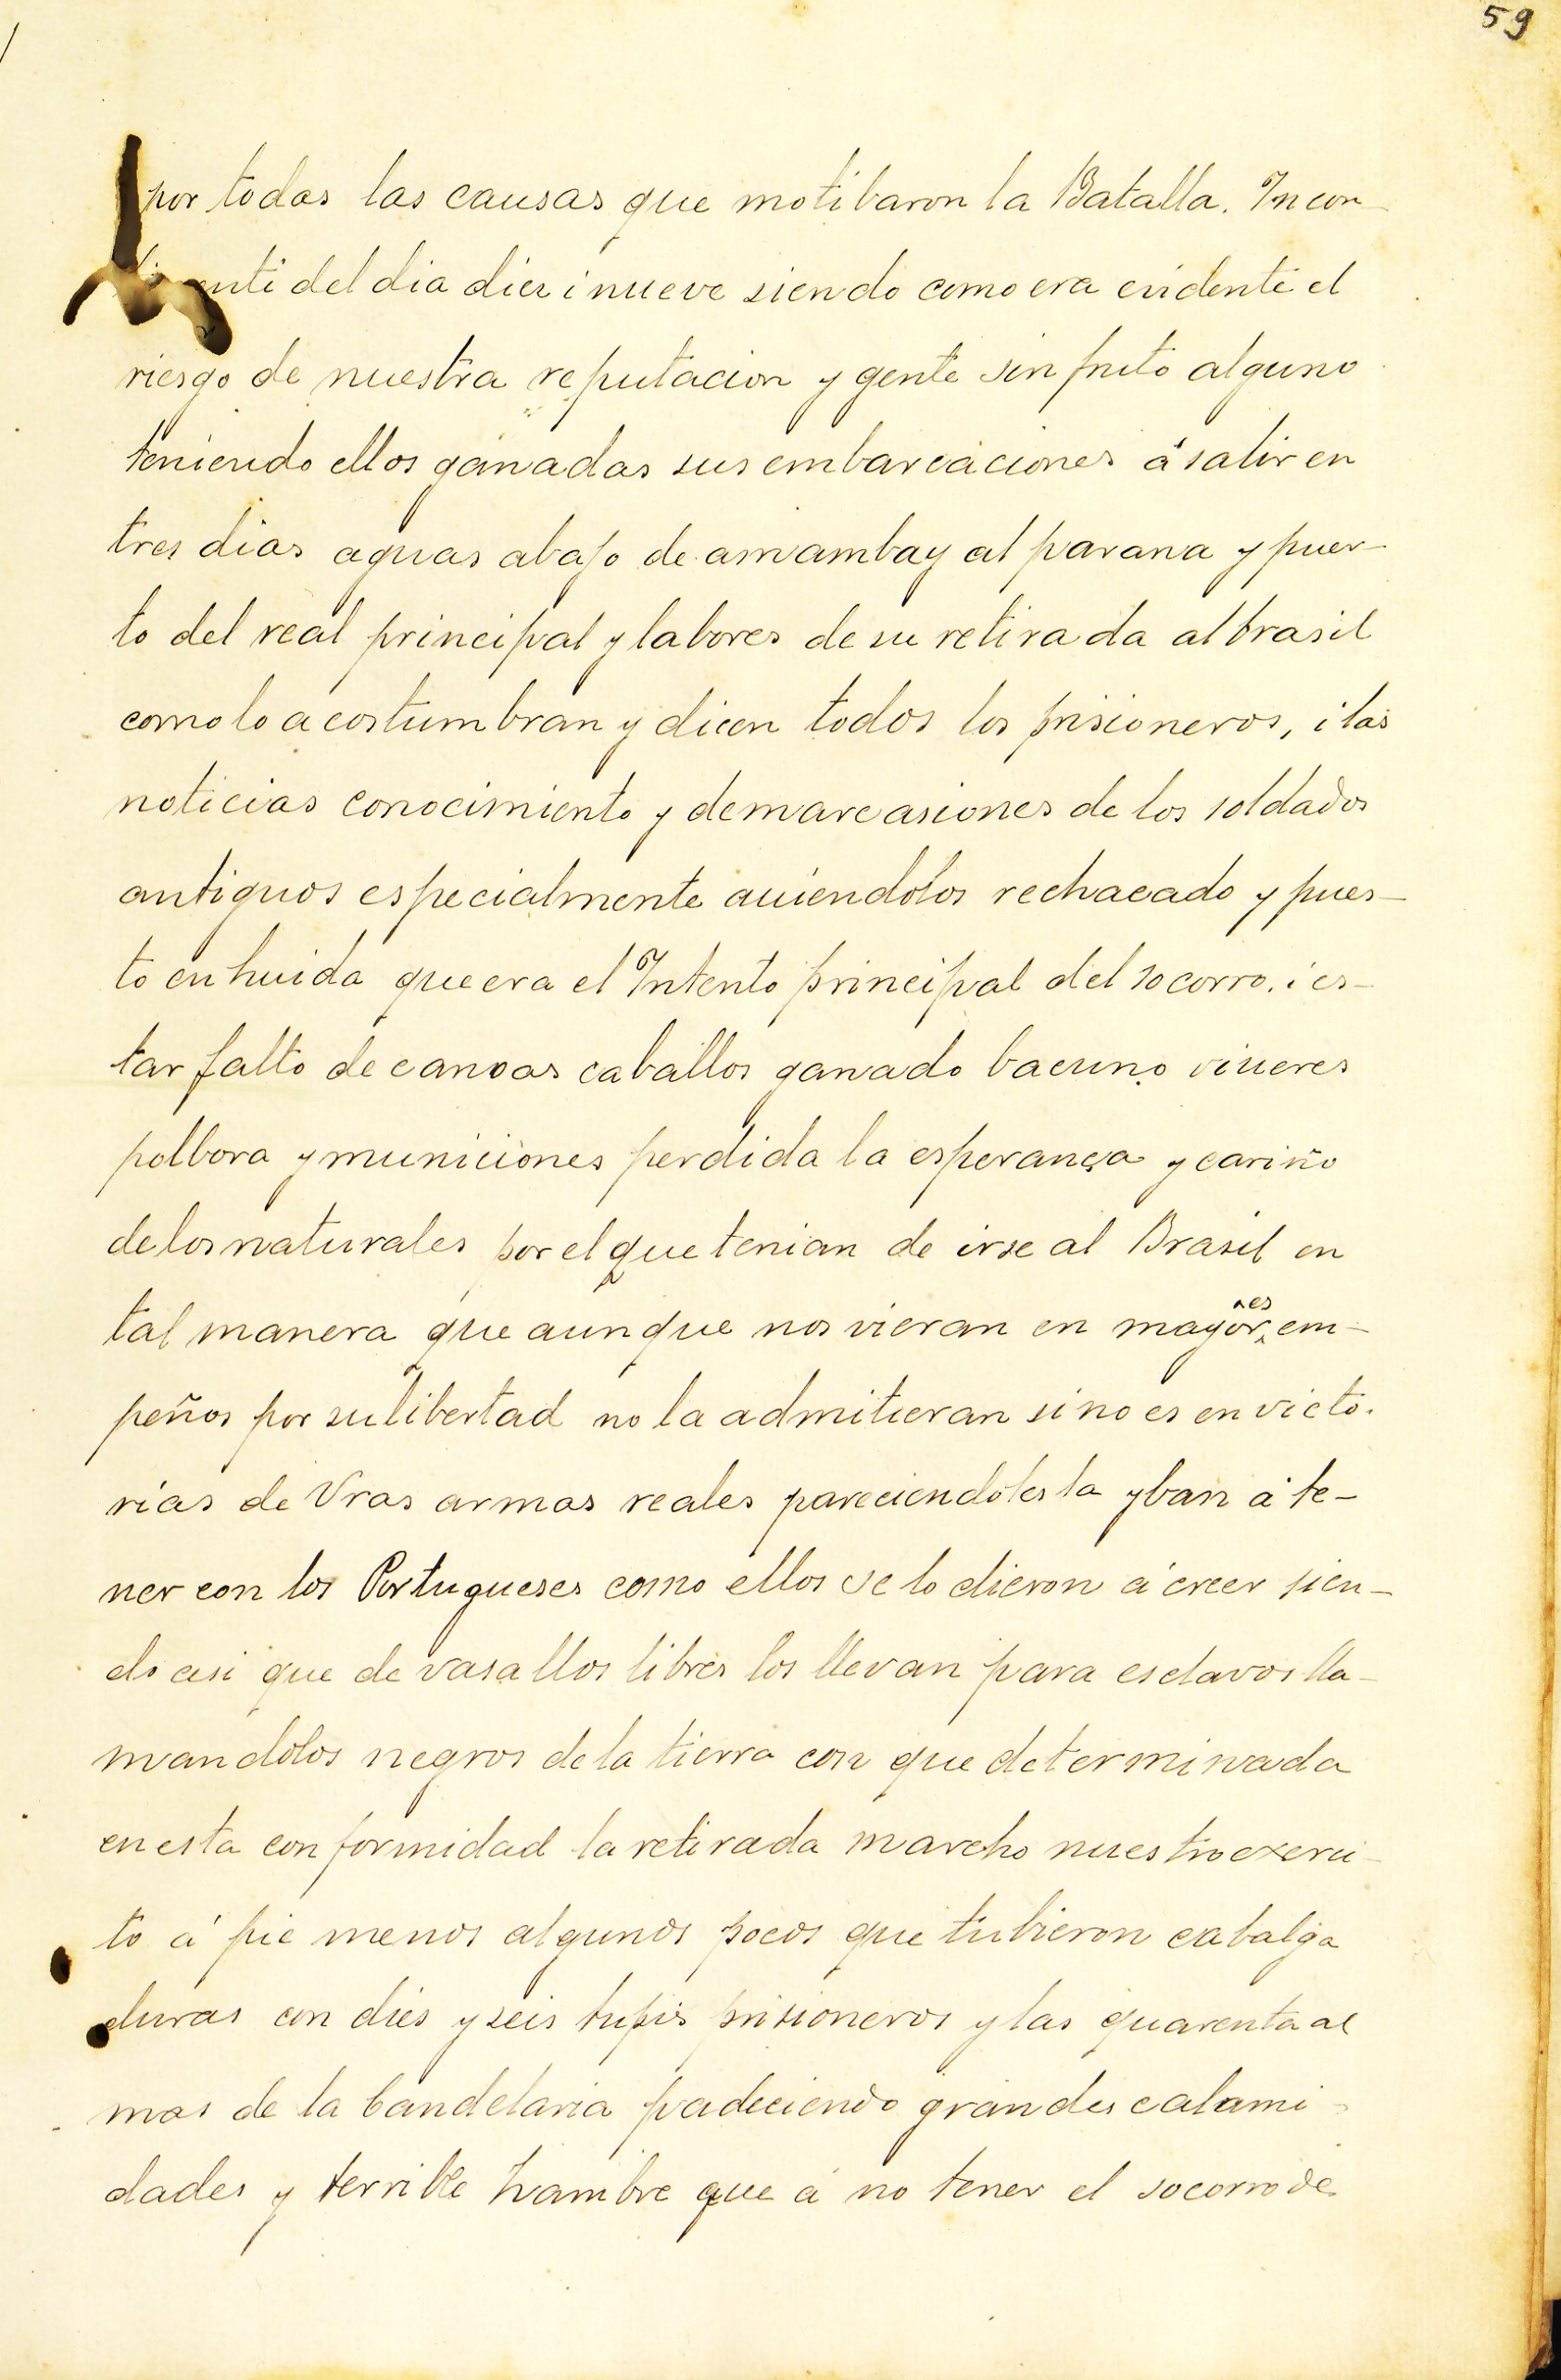 59
por todas las causas que motibaron la Batalla. Incon-
tinenti del dia diez i nueve siendo como era evidente el
riesgo de nuestra reputacion y gente sin fruto alguno
teniendo ellos ganadas sus embarcaciones á salir en
tres dias aguas abajo de amambay al parana y puer-
to del real principal y labores de su retirada al brasil
como lo acostumbran y dicen todos los prisioneros, i las
noticias conocimiento y demarcasiones de los soldados
antiguos especialmente auiendolos rechacado y pues-
to en huida que era el Intento principal del socorro. i es-
tar falto de canoas caballos ganado bacuno viueres
polbora y municiones perdida la esperança y cariño
de los naturales por el que tenian de irse al Brasil en
tal manera que aunque nos vieran en mayores em-
peños por su libertad no la admitieran si no es en victo-
rias de Vras armas reales pareciendoles la yban á te-
ner con los Portugueses como ellos se lo dieron á creer sien-
do asi que de vasallos libres los llevan para esclavos lla-
mandolos negros de la tierra con que determinada
en esta conformidad la retirada marcho nuestro exerci-
to á pie menos algunos pocos que tubieron cabalga
duras con diés y seis tupis prisioneros y las quarenta al
mas de la candelaria padeciendo grandes calami-
dades y terrible hambre que á no tener el socorro de